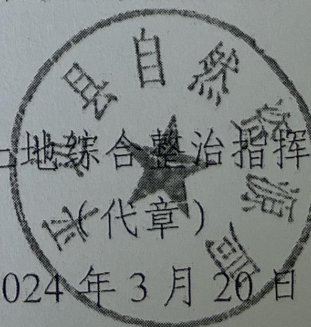 县自然资源局
土地综合整治指挥
（代章）
2024年3月20日